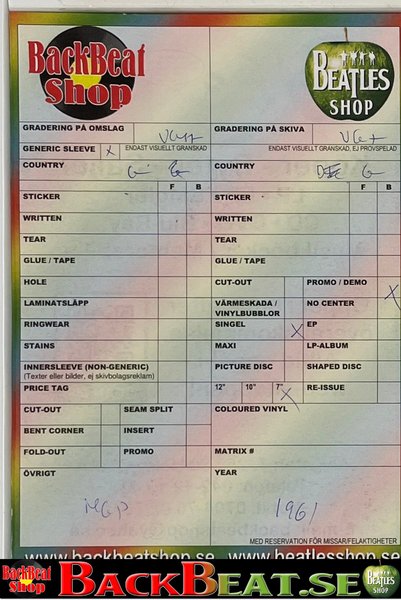 BackBeat
Shop
BEATLES
SHOP
GRADERING PÅ OMSLAG
GRADERING PÅ SKIVA
GENERIC SLEEVE x ENDAST VISUELLT GRANSKAD
ENDAST VISUELLT GRANSKAD, EJ PROVSPELAD
COUNTRY
COUNTRY
F B
F B
STICKER
STICKER
WRITTEN
WRITTEN
TEAR
TEAR
GLUE / TAPE
GLUE / TAPE
HOLE
CUT-OUT
PROMO / DEMO x
LAMINATSLÄPP
VÄRMESKADA /
VINYLBUBBLOR
NO CENTER
RINGWEAR
SINGEL x
EP
STAINS
MAXI
LP-ALBUM
INNERSLEEVE (NON-GENERIC)
(Texter eller bilder, ej skivbolagsreklam)
PICTURE DISC
SHAPED DISC
PRICE TAG
12" 10" 7" x
RE-ISSUE
CUT-OUT
SEAM SPLIT
COLOURED VINYL
BENT CORNER
INSERT
FOLD-OUT
PROMO
MATRIX #
ÖVRIGT
YEAR
1961
MED RESERVATION FÖR MISSAR/FELAKTIGHETER
www.backbeatshop.se
www.beatlesshop.se
BackBeat
Shop
BACKBEAT.SE
BEATLES
SHOP